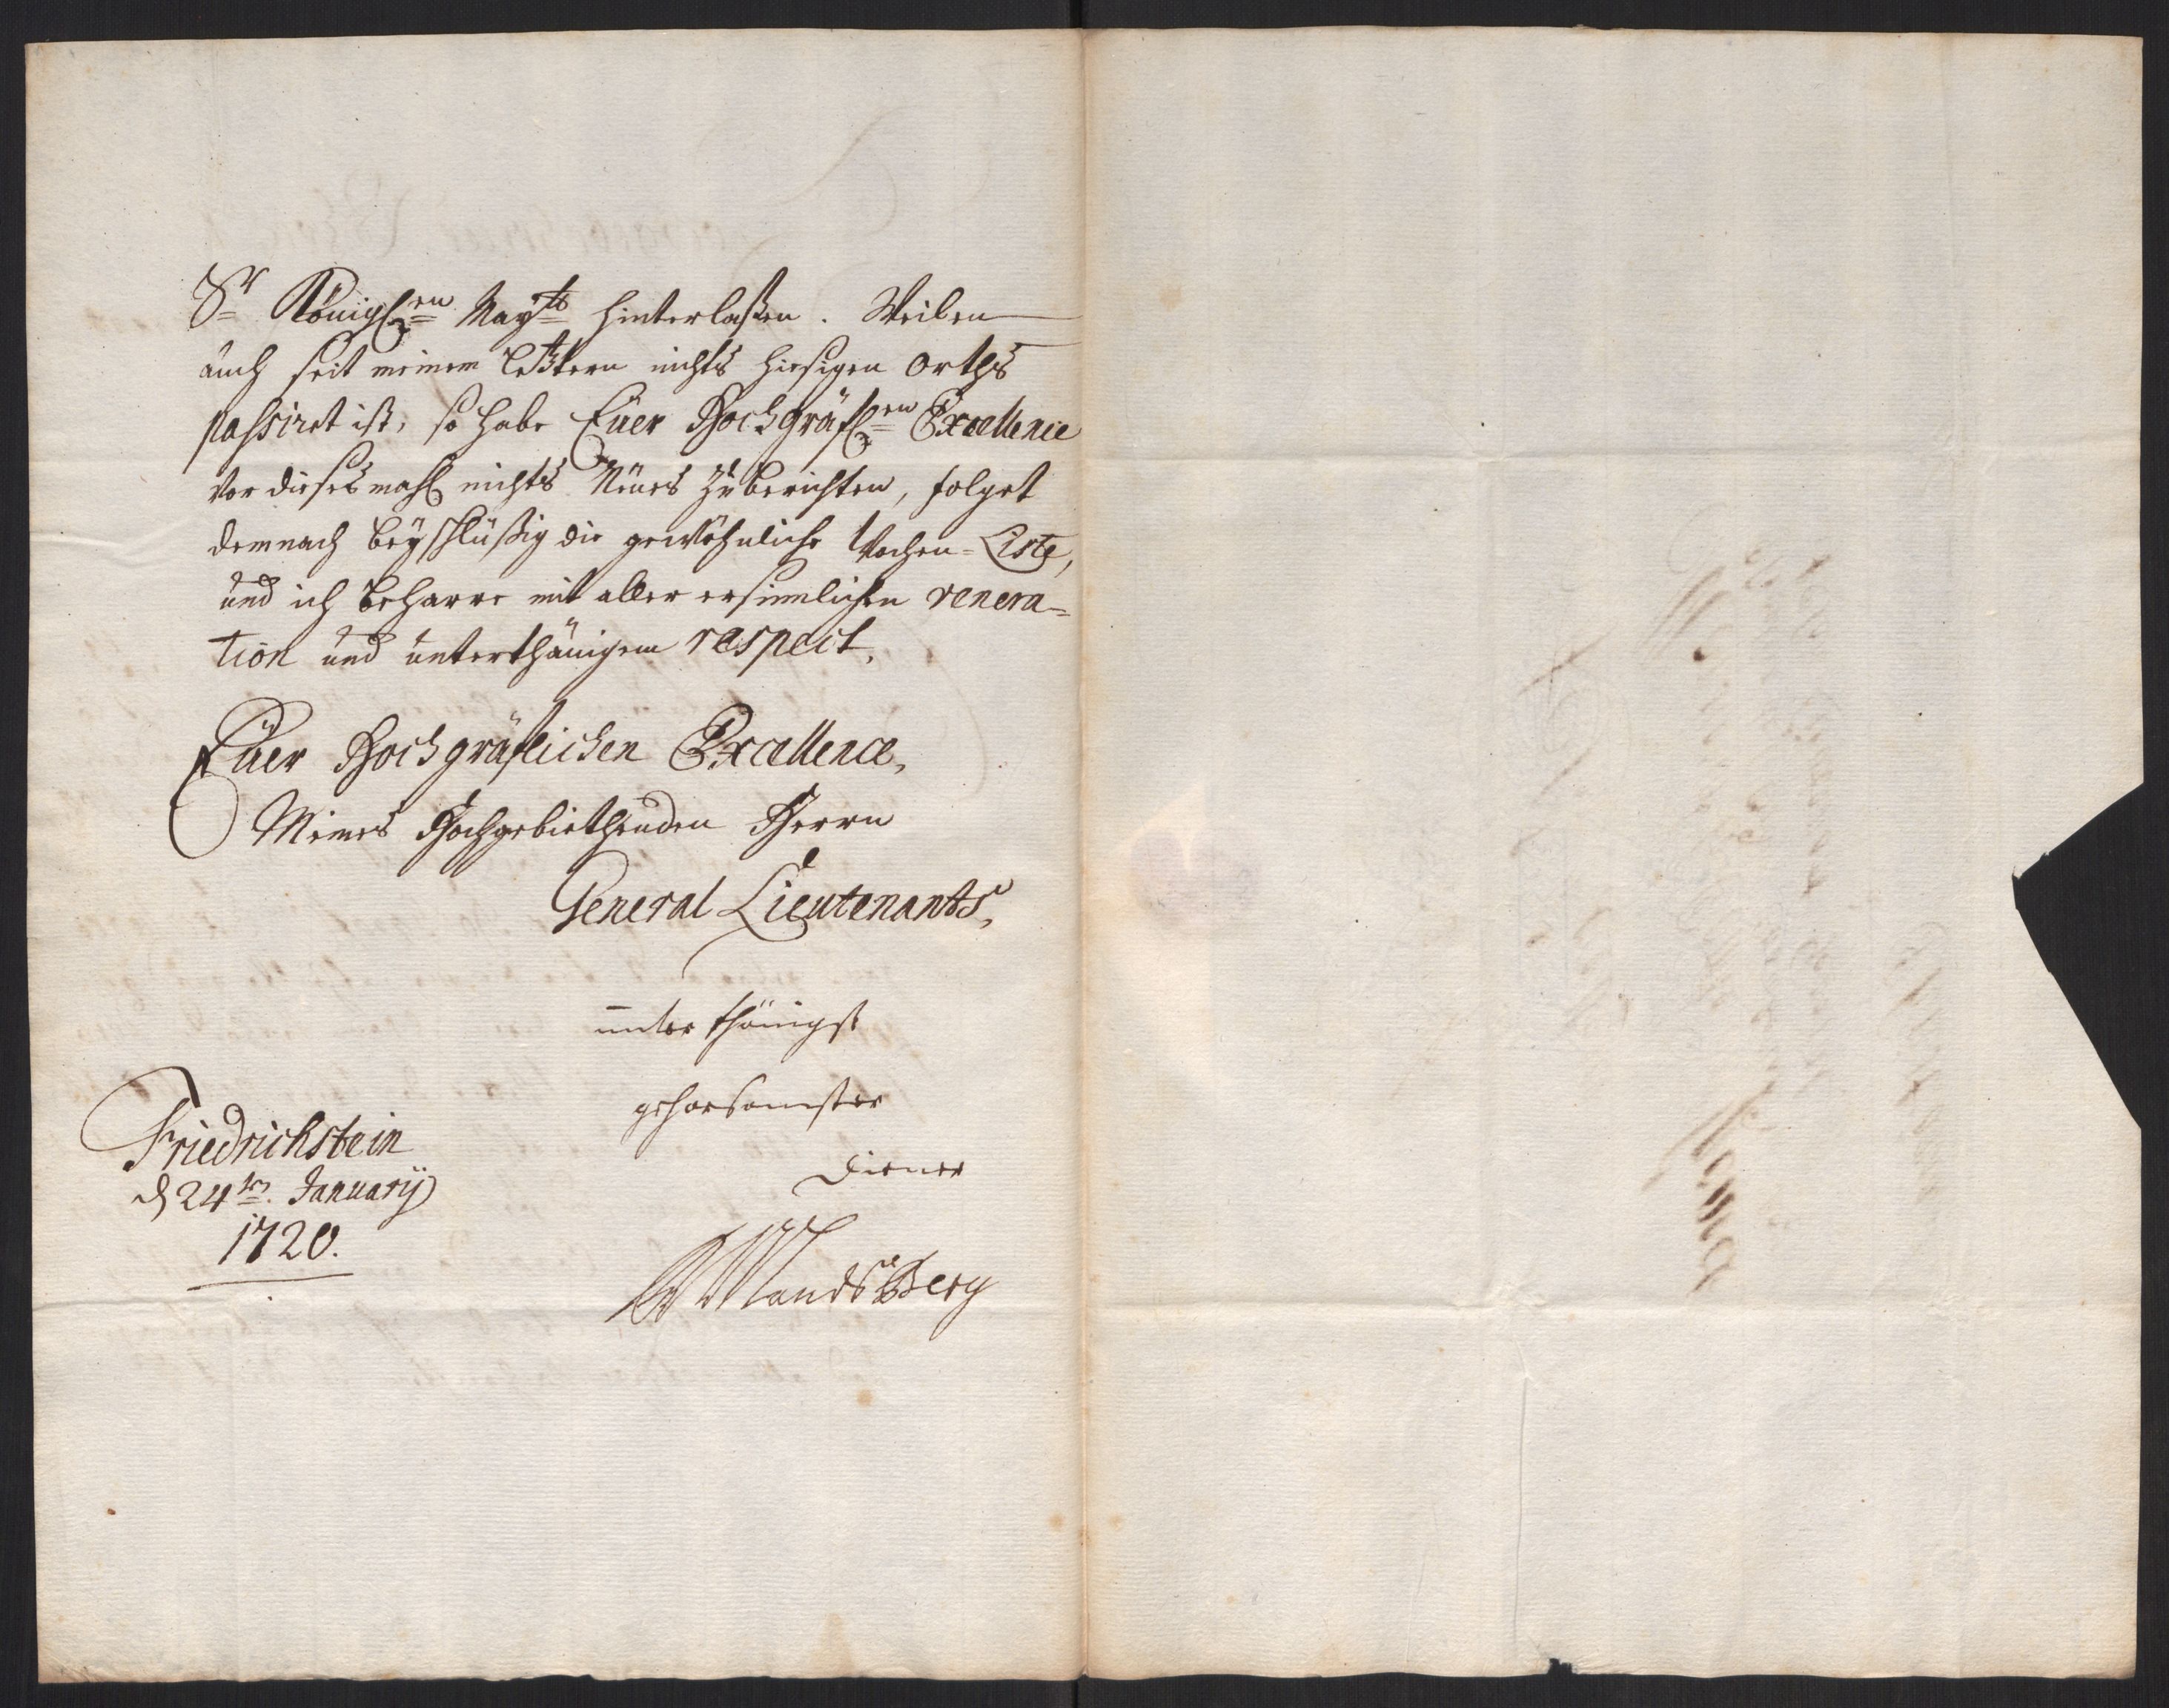 Sr Königlen Maytt hinterlaßen. Weilen
auch seit meinem letztern nichts hiesigen Orths
passiret ist, so habe Euer Hochgräflen Excellence
vor dieses mahl nichts Neues zu berichten, folget
demnach beyschlüßig die gewöhnliche Wochen-Liste,
und ich beharre mit aller ersinnlichen venera-
tion und unterthänigem respect,
Euer Hochgräflichen Excellence,
Meines Hochgebiethenden Herrn
General Lieutenants,
unterthänigst
gehorsamster
Diener
Friedrichstein
d 24ten January
1720.
Landsberg